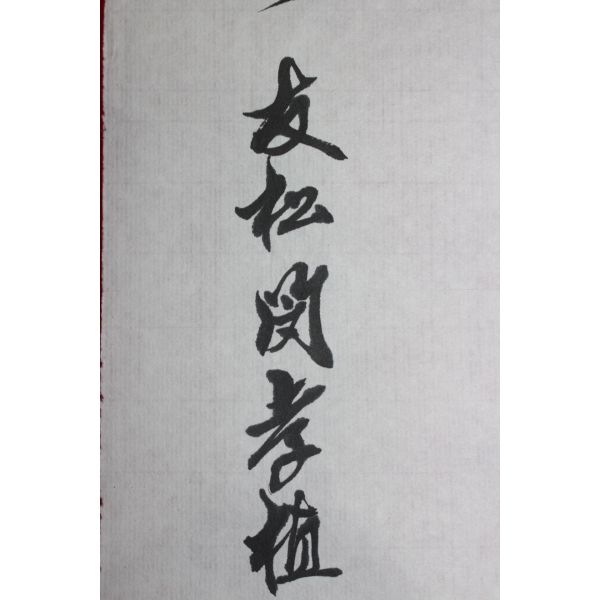 友松 閔孝植